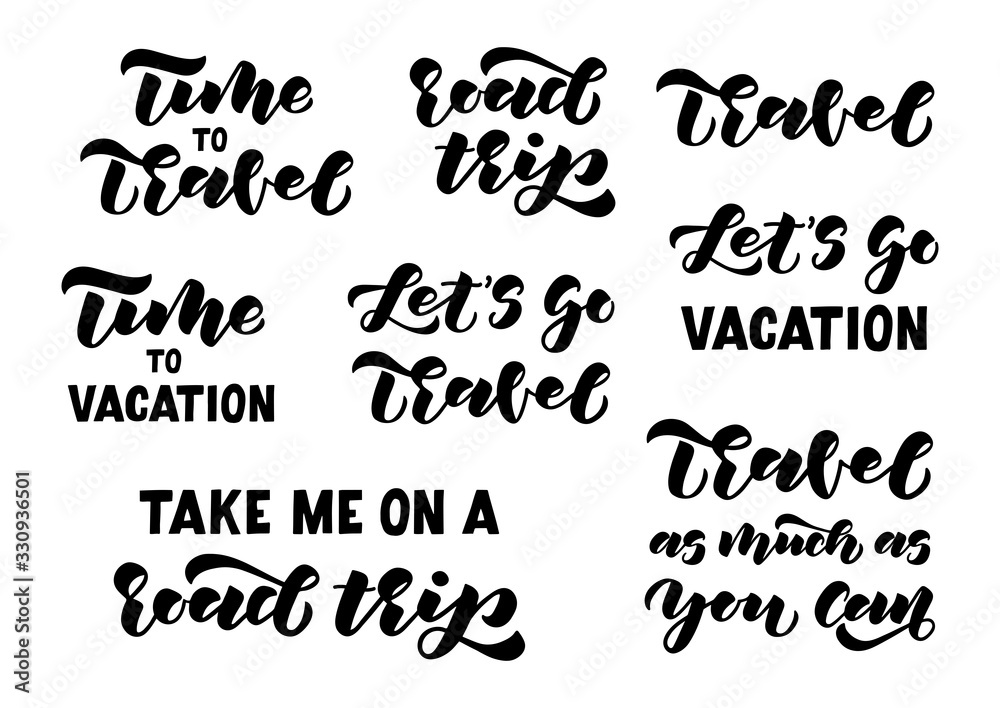 Time
TO
Travel
road
trip
Travel
Let's go
VACATION
Time
TO
VACATION
Let's go
Travel
TAKE ME ON A
road trip
Travel
as much as
you can
Adobe Stock | #330936501